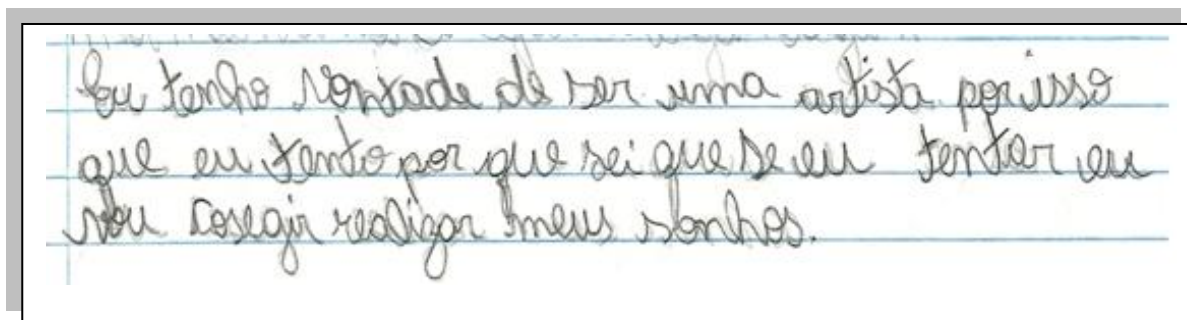 Eu tenho vontade de ser uma artista por isso
que eu tento por que sei que se eu tentar eu
vou cosegir realizar meus sonhos.